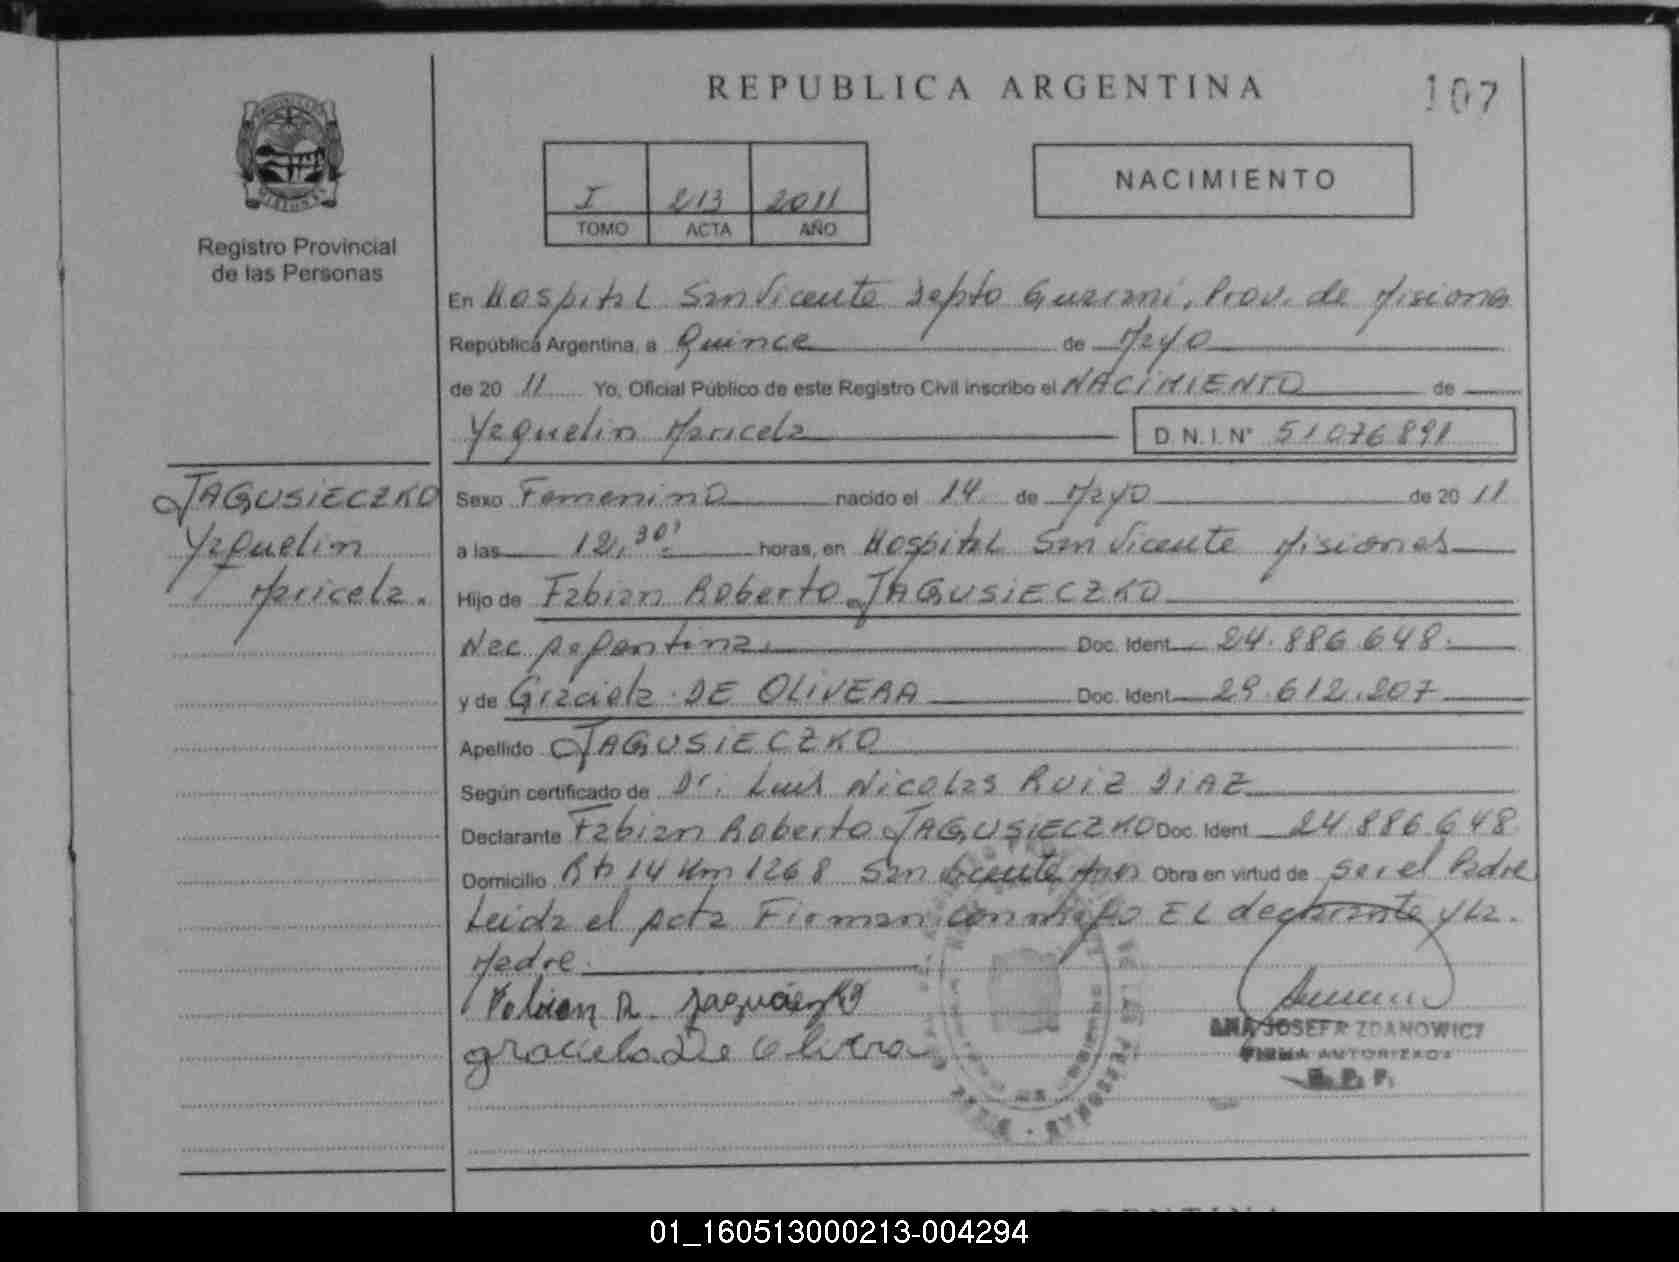 REPUBLICA ARGENTINA
107
NACIMIENTO
I 213 2011
TOMO ACTA AÑO
Registro Provincial
de las Personas
En Hospital San Vicente Depto Guarani, Prov. de Misiones
República Argentina, a Quince de Mayo
de 20 11 Yo, Oficial Público de este Registro Civil inscribo el NACIMIENTO de
Yaquelin Maricela D.N.I. Nº 51076891
JAGUSIECZKO
Yaquelin
Maricela.
Sexo Femenino nacido el 14 de Mayo de 20 11
a las 12,30' horas, en Hospital San Vicente Misiones
Hijo de Fabian Roberto JAGUSIECZKO
Nac Argentina. Doc. Ident. 24.886.648.
y de Graciela DE OLIVERA Doc. Ident. 29.612.207
Apellido JAGUSIECZKO
Según certificado de Dr. Luis Nicolas RUIZ DIAZ
Declarante Fabian Roberto JAGUSIECZKO Doc. Ident. 24.886.648
Domicilio Rta 14 Km 1268 San Vicente Mnes Obra en virtud de ser el Padre
Leida el acta Firman conmigo EL declarante y la.
Madre.
Fabian R. Jagusieczko
graciela De Olivera
ANA JOSEFA ZDANOWICZ
FIRMA AUTORIZADA
R. P. P.
01_160513000213-004294